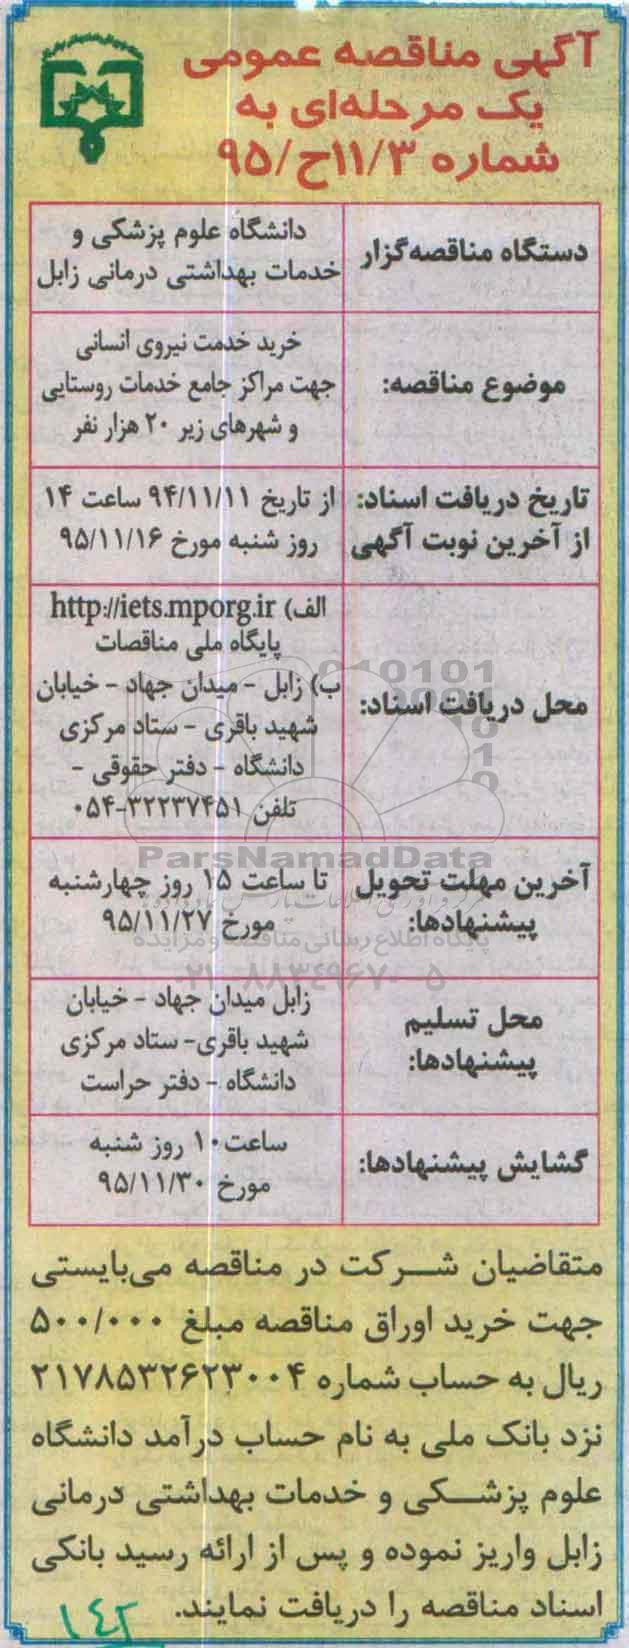 آگهی مناقصه عمومی
یک مرحله‌ای به
شماره ۱۱/۳ح/۹۵
دستگاه مناقصه‌گزار
دانشگاه علوم پزشکی و
خدمات بهداشتی درمانی زابل
موضوع مناقصه:
خرید خدمت نیروی انسانی
جهت مراکز جامع خدمات روستایی
و شهرهای زیر ۲۰ هزار نفر
تاریخ دریافت اسناد:
از آخرین نوبت آگهی
از تاریخ ۹۴/۱۱/۱۱ ساعت ۱۴
روز شنبه مورخ ۹۵/۱۱/۱۶
محل دریافت اسناد:
الف) http://iets.mporg.ir
پایگاه ملی مناقصات
ب) زابل - میدان جهاد - خیابان
شهید باقری - ستاد مرکزی
دانشگاه - دفتر حقوقی -
تلفن ۳۲۲۳۷۴۵۱-۰۵۴
ParsNamadData
آخرین مهلت تحویل
پیشنهادها:
تا ساعت ۱۵ روز چهارشنبه
مورخ ۹۵/۱۱/۲۷
پایگاه اطلاع رسانی مناقصه و مزایده
۰۲۱-۸۸۳۴۹۶۷۰-۵
محل تسلیم
پیشنهادها:
زابل میدان جهاد - خیابان
شهید باقری- ستاد مرکزی
دانشگاه - دفتر حراست
گشایش پیشنهادها:
ساعت۱۰ روز شنبه
مورخ ۹۵/۱۱/۳۰
متقاضیان شرکت در مناقصه می‌بایستی
جهت خرید اوراق مناقصه مبلغ ۵۰۰/۰۰۰
ریال به حساب شماره ۲۱۷۸۵۳۲۶۲۳۰۰۴
نزد بانک ملی به نام حساب درآمد دانشگاه
علوم پزشکی و خدمات بهداشتی درمانی
زابل واریز نموده و پس از ارائه رسید بانکی
اسناد مناقصه را دریافت نمایند.
۱۴۲